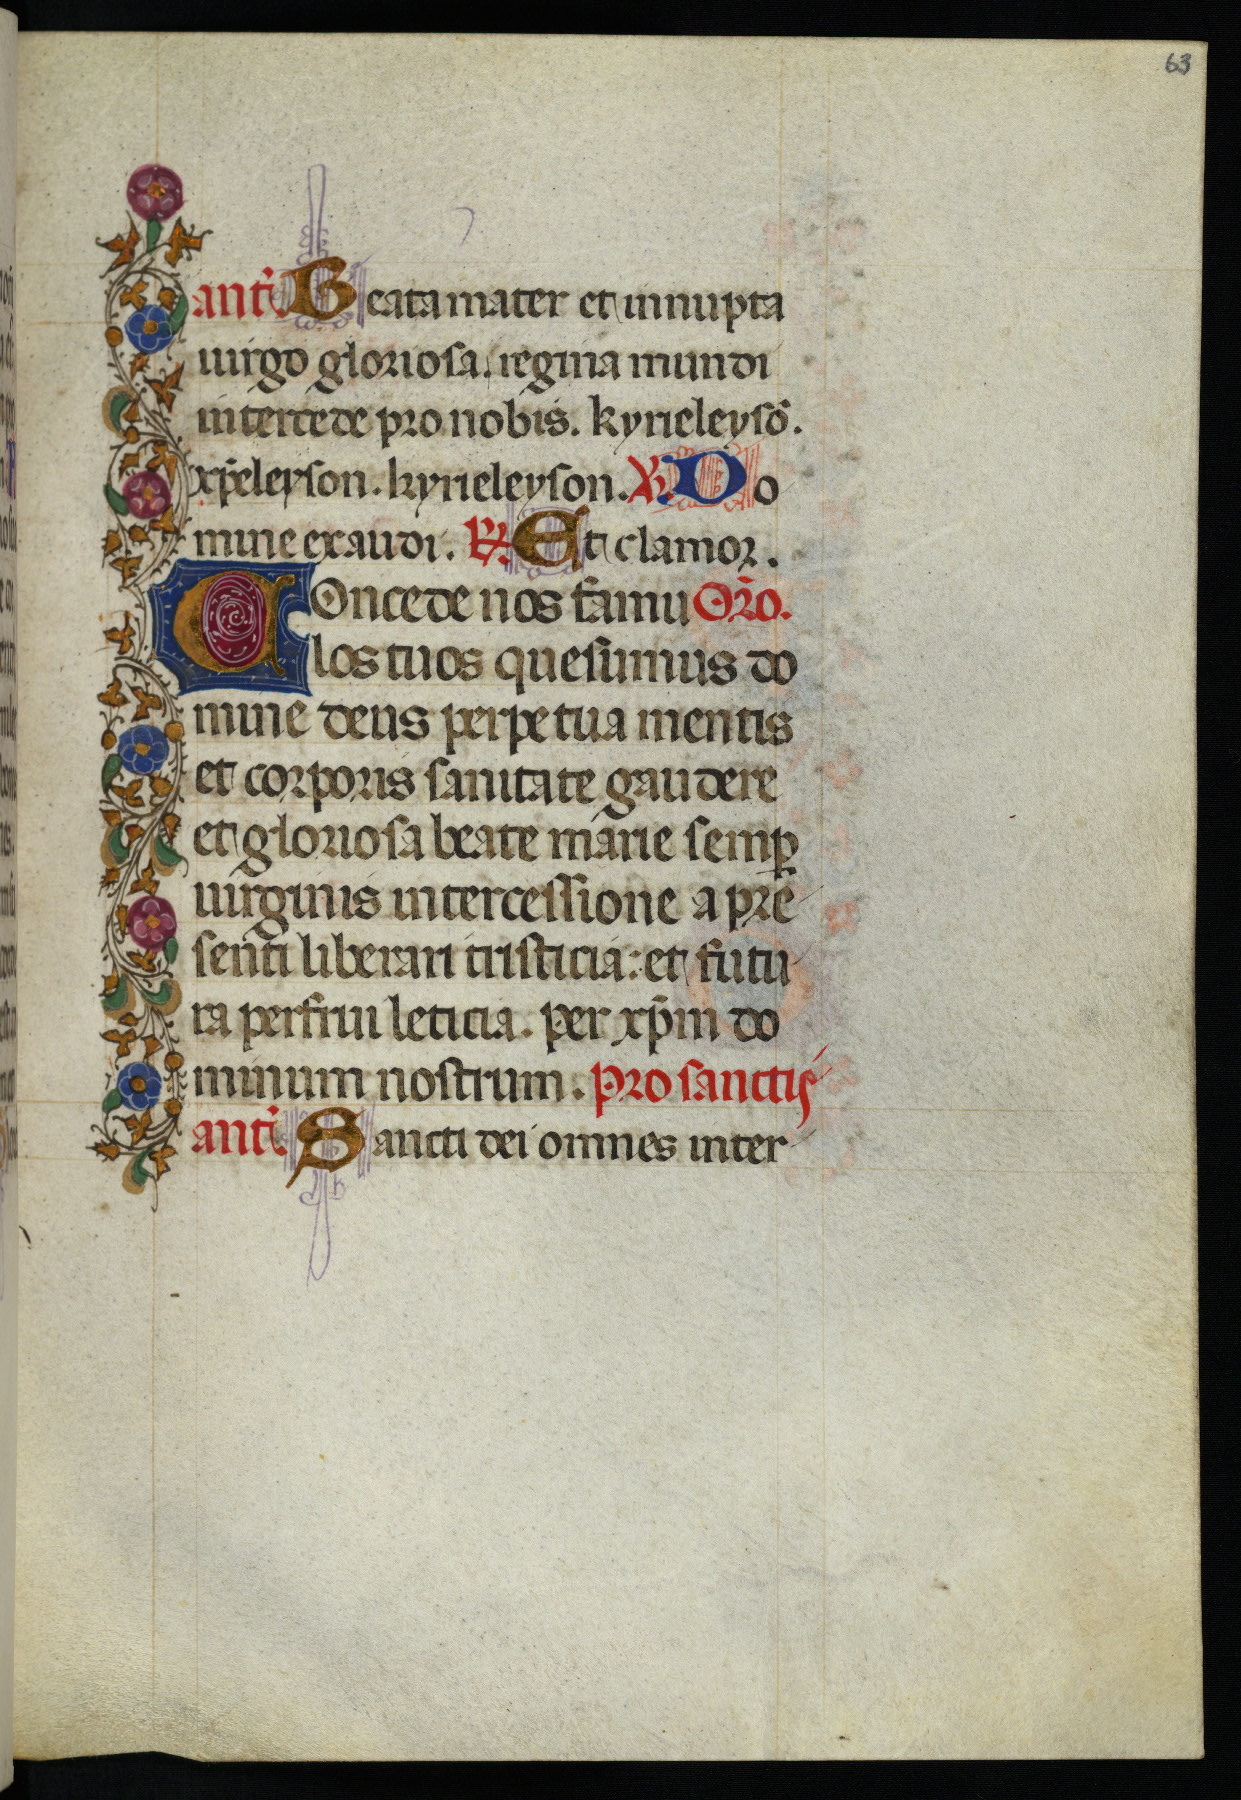 63
antͥ. Beata mater et innupta
uirgo gloriosa. regina mundi
intercede pro nobis. kyrieleysō.
xp̄eleyson. kyrieleyson. ℣. Do
mine exaudi. ℟. Et clamor.
Concede nos famu Orō.
los tuos quesumus do
mine deus perpetua mentis
et corporis sanitate gaudere
et gloriosa beate marie semꝑ
uirginis intercessione a pre
senti liberari tristicia: et futu
ra perfrui leticia. per xp̄m do
minum nostrum. Pro sanctis
antͥ. Sancti dei omnes inter